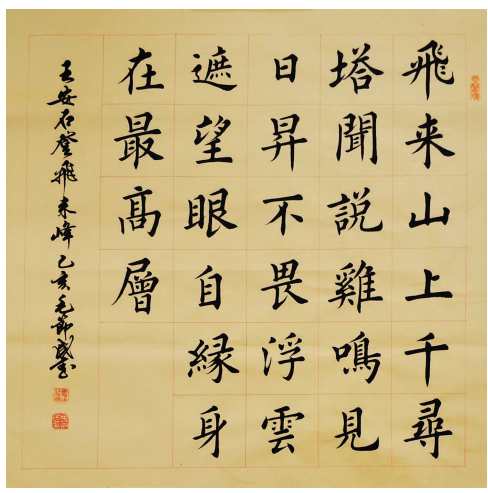 飛来山上千尋
塔聞說雞鳴見
日昇不畏浮雲
遮望眼自緣身
在最高層
王安石登飛来峰乙亥毛節盛書